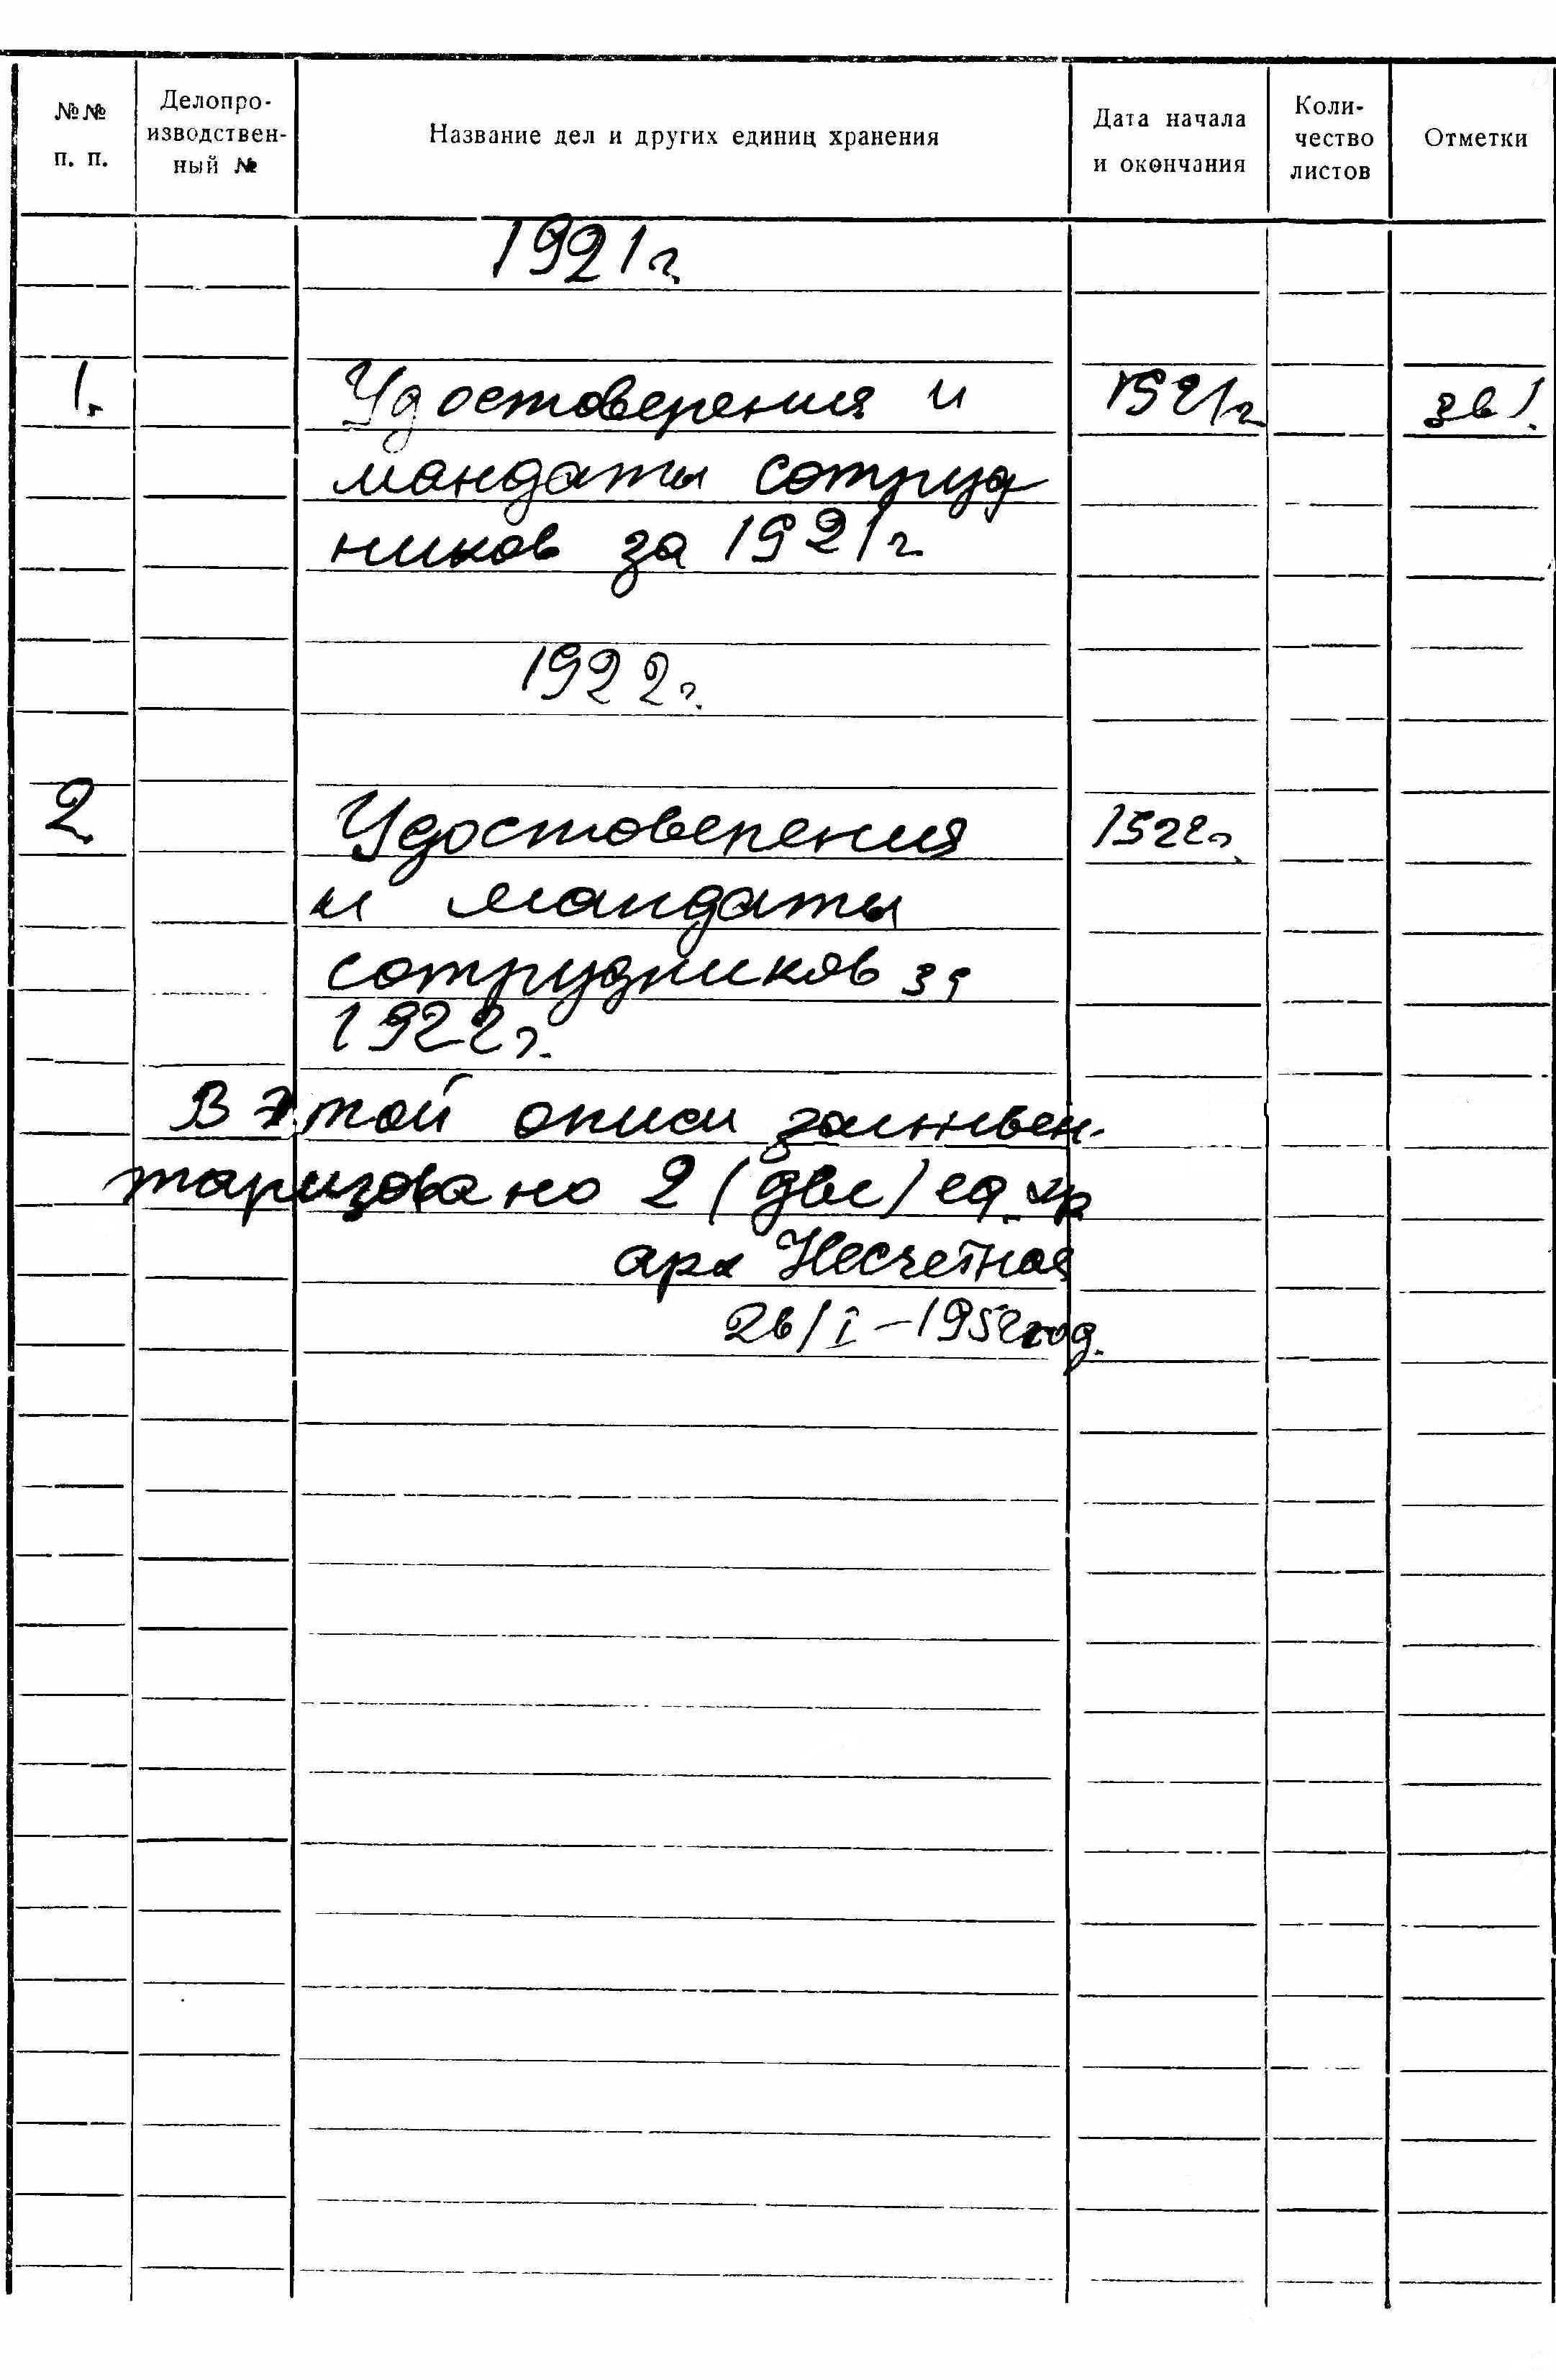 №№ п. п.
Делопро-
изводствен-
ный №
Название дел и других единиц хранения
Дата начала
и окончания
Коли-
чество
листов
Отметки
1921г
1. Удостоверения и 1921г
мандаты сотруд
ников за 1921г
1922г.
2 Удостоверения 1922г.
и мандаты
сотрудников за
1922г.
В этой описи заинвен-
таризовано 2 (две) ед. хр
арх Несчетная
26/I – 1952год.